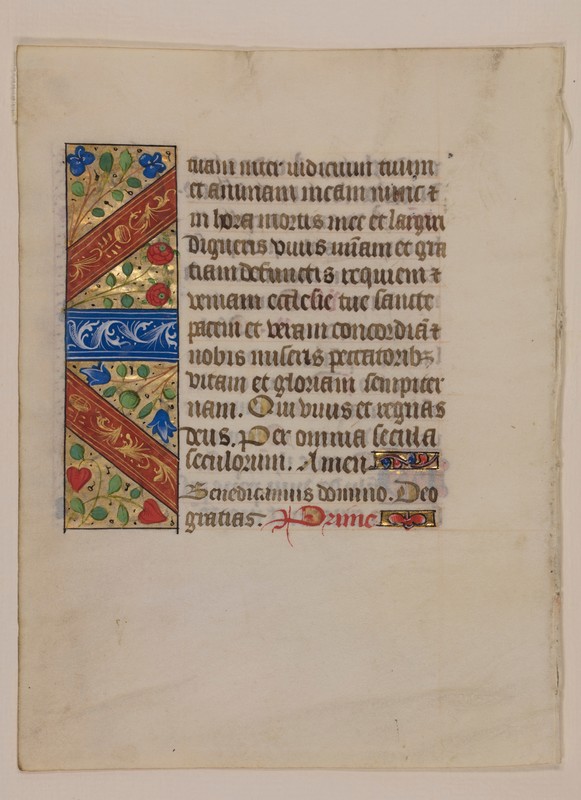 tuam inter iudicium tuum
et animam meam nunc ⁊
in hora mortis mee et largiri
Digneris viuis m̄iam et gra
tiam defunctis requiem ⁊
veniam ecclesie tue sancte
pacem et veram concordiā ⁊
nobis miseris peccatorib⁊
vitam et gloriam sempiter
nam. Qui viuis et regnas
deus. Per omnia secula
seculorum. Amen
Benedicamus domino. Deo
gratias. Prime